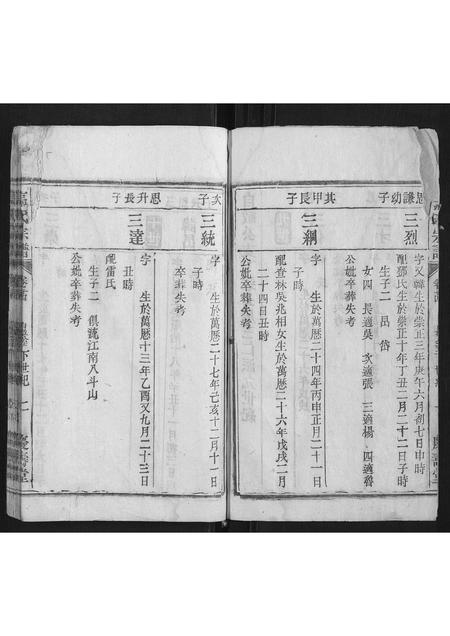 思謙幼子
三烈
字又韓生於崇正三年庚午六月初七日申時
配鄧氏生於崇正十年丁丑二月二十二日子時
生子二 岊 岱
女四 長適吳 次適張 三適楊 四適魯
公妣卒葬失考
其甲長子
三綱
字 生於萬厯二十四年丙申正月二十一日
子時
配查林吳兆相女生於萬厯二十六年戊戌二月
二十四日丑時
公妣卒葬失考
次子
三統
字 生於萬厯二十七年己亥十二月十一日
子時
卒葬失考
思升長子
三達
字 生於萬厯十三年乙酉又九月二十三日
丑時
配雷氏
生子二 俱流江南八斗山
公妣卒葬失考
下世紀